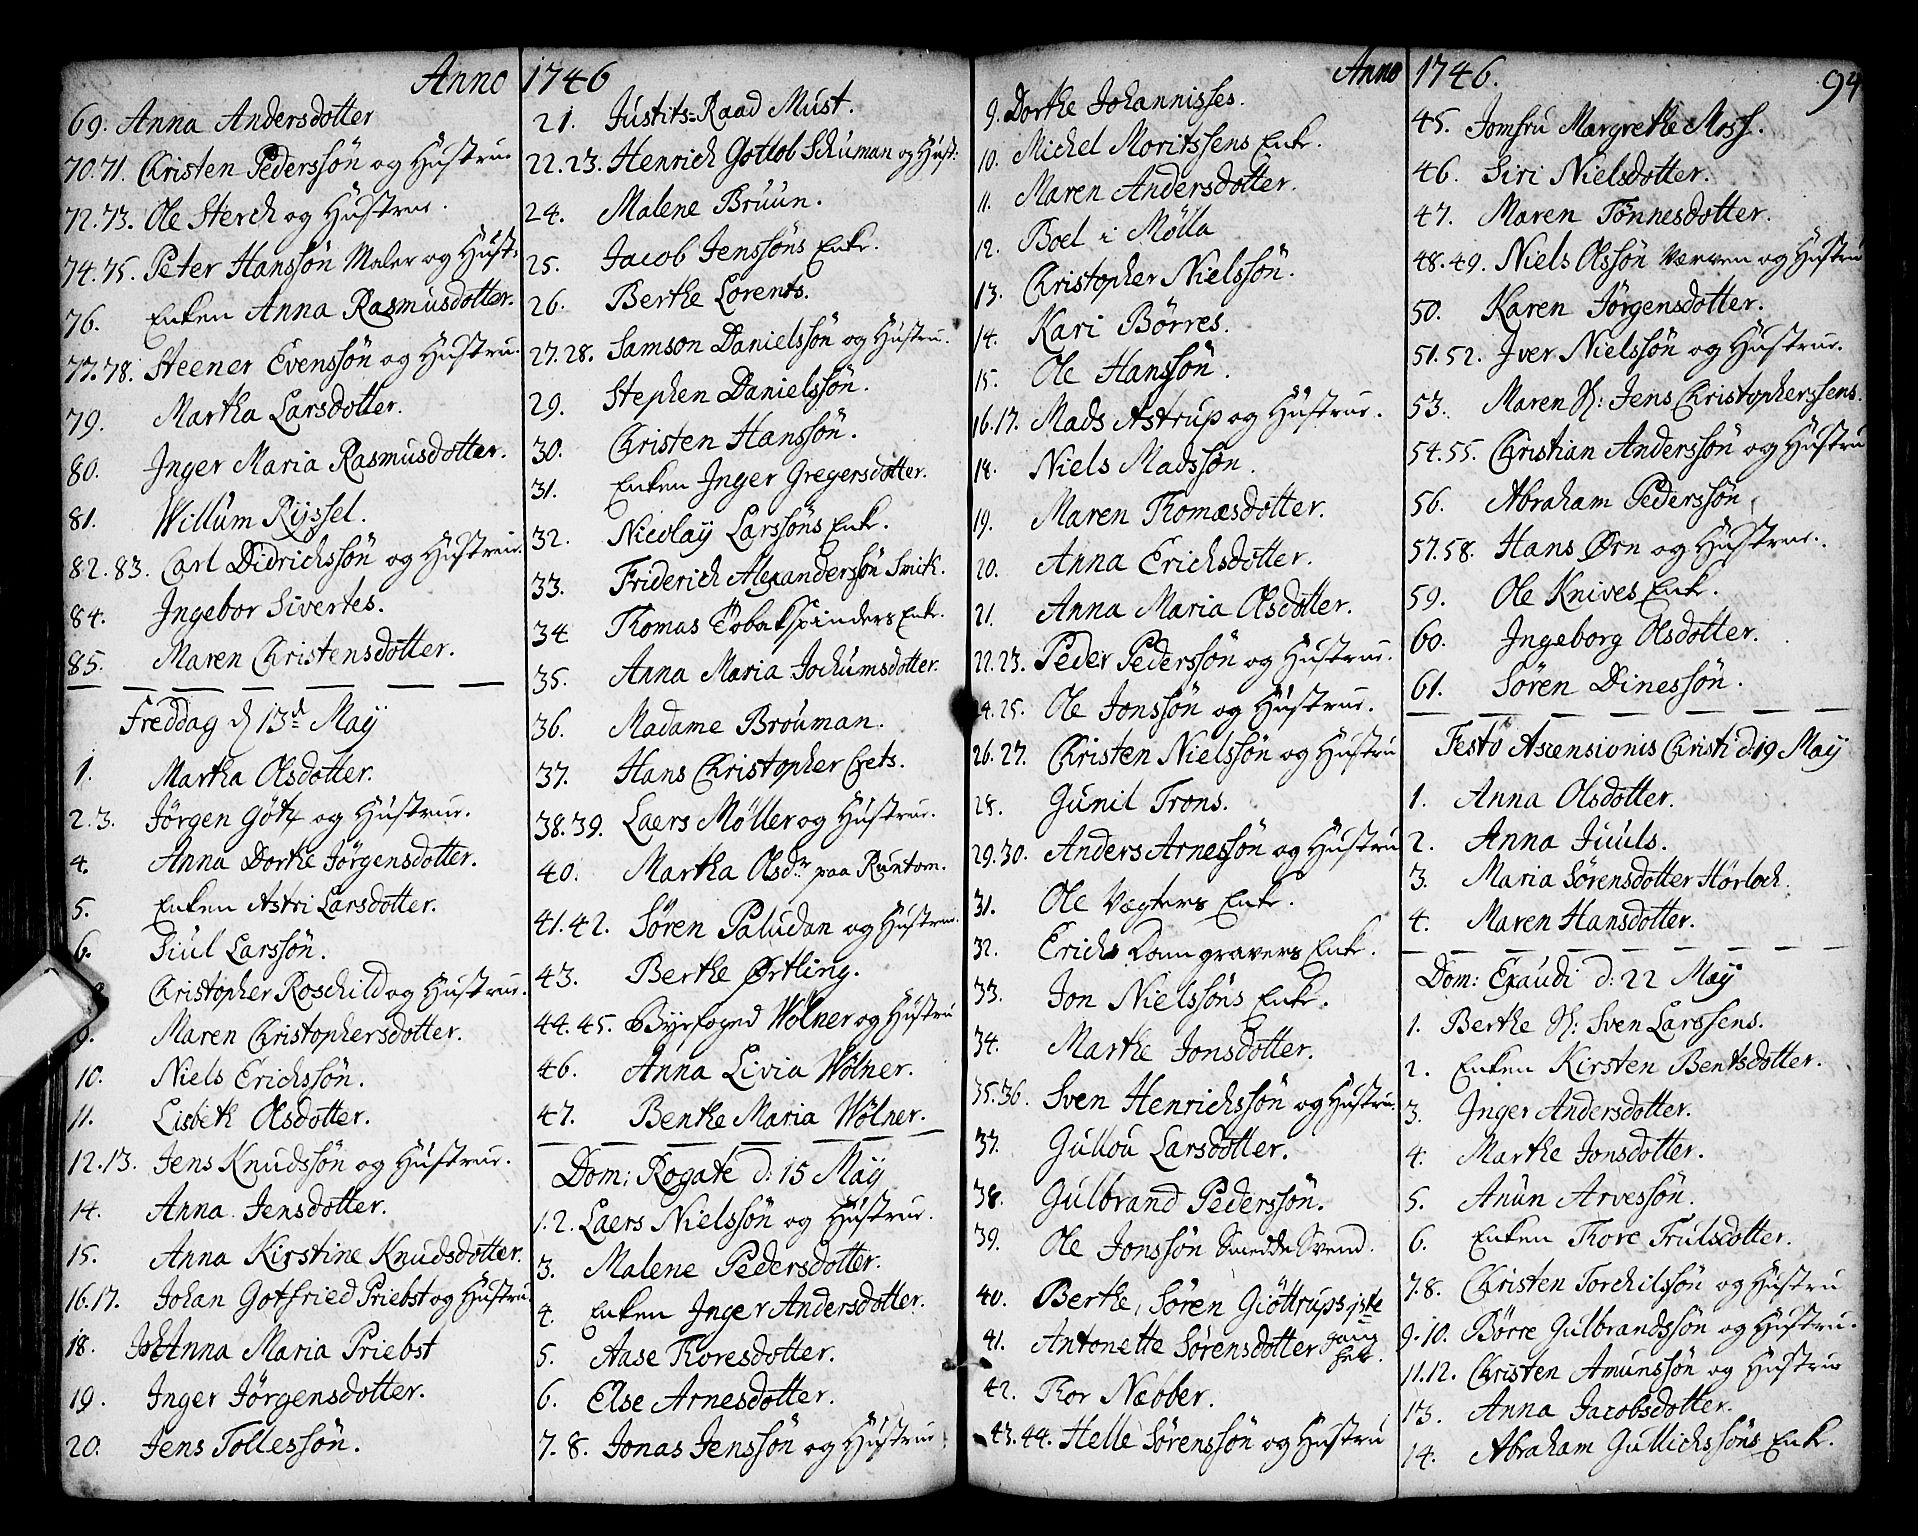 Anno 1746
69. Anna Andersdotter
70.71. Christen Pederssön og Hustrue
72.73. Ole Sterch og Hustrue.
74.75. Peter Hanssön Maler og Hust:
76. Enken Anna Rasmusdotter.
77.78. Steener Evenssön og Hustru.
79. Martha Larsdotter.
80. Inger Maria Rasmusdotter.
81. Willum Ryssel.
82.83. Carl Didrichssön og Hustrue.
84. Ingebor Sivertes.
85. Maren Christensdotter.
Freddag d 13de May
1. Martha Olsdotter.
2.3. Jörgen Götz og Hustrue.
4. Anna Dorthe Jörgensdotter.
5. Enken Astri Larsdotter.
6. Siul Larssön.
Christopher Roschild og Hustrue.
9. Maren Christophersdotter.
10. Niels Erichssön.
11. Lisbeth Olsdotter.
12.13. Jens Knudssön og Hustrue.
14. Anna Jensdotter.
15. Anna Kirstine Knudsdotter.
16.17. Johan Gotfried Priebst og Hustru.
18. Anna Maria Priebst
19. Inger Jörgensdotter.
20. Jens Tollessön.
21. Justits=Raad Must.
22.23. Henrich Gottlob Schuman og Hust:
24. Malene Bruun.
25. Jacob Jenssöns Enke.
26. Berthe Lorents.
27.28. Samson Danielssön og Hustru.
29. Stephen Danielssön.
30. Christen Hanssön.
31. Enken Inger Gregersdotter.
32. Nicolay Larssöns Enke.
33. Friderich Alexanderssön Smith.
34 Thomas Tobakspinders Enke.
35. Anna Maria Jochumsdotter.
36. Madame Brouman.
37. Hans Christopher Crets.
38.39. Laers Møller og Hustrue.
40. Martha Olsdr paa Runtom.
41.42. Sören Paludan og Hustrue.
43. Berthe Ørtling.
44.45. Byefoged Wölner og Hustru
46. Anna Livia Wölner.
47. Benthe Maria Wölner.
Dom: Rogate d: 15 May
1.2. Laers Nielssön og Hustrue.
3. Malene Pedersdotter.
4. Enken Inger Andersdotter.
5. Aase Thoresdotter.
6. Else Arnesdotter.
7.8. Jonas Jenssön og Hustrue
Anno 1746. 94
9. Dorthe Johannisses.
10. Michel Moritssens Enke.
11. Maren Andersdotter.
12. Boel i Mølla
13. Christopher Nielssön.
14. Kari Børres.
15. Ole Hanssön.
16.17. Mads Astrup og Hustrue.
18. Niels Madssön.
19. Maren Thomæsdotter.
20. Anna Erichsdotter.
21. Anna Maria Olsdotter.
22.23. Peder Pederssön og Hustrue.
24.25. Ole Jonssön og Hustrue.
26.27. Christen Nielssön og Hustru
28. Gunil Trons.
29.30. Anders Arnessön og Hustru
31. Ole Vægters Enke.
32. Erichs Domgravers Enke.
33. Jon Nielssöns Enke.
34. Marthe Jonsdotter.
35.36. Sven Henrichssön og Hustru.
37. Gullou Larsdotter.
38. Gulbrand Pederssön.
39. Ole Jonssön Smedde Svend.
40. Berthe, Sören Giöttrups 1ste
41. Antonette Sörensdotter gang her.
42. Thor Næøber.
43.44. Helle Sörenssön og Hustru
45. Jomfru Margrethe Moss.
46. Siri Nielsdotter.
47. Maren Tönnesdotter.
48.49. Niels Olssön Værven og Hustru
50. Karen Jörgensdotter.
51.52. Iver Nielssön og Hustrue.
53. Maren H: Jens Christopherssens.
54.55. Christian Anderssön og Hustru
56. Abraham Pederssön,
57.58. Hans Ørn og Hustrue.
59. Ole Knives Enke.
60. Ingeborg Olsdotter.
61. Sören Dinessön.
Festo Ascensionis Christi d: 19 May
1. Anna Olsdotter.
2. Anna Juuls.
3. Maria Sörensdotter Hörloch.
4. Maren Hansdotter.
Dom: Exaudi d: 22 May
1. Berthe H: Sven Larssens.
2. Enken Kirsten Bentsdotter.
3. Inger Andersdotter.
4. Marthe Jonsdotter.
5. Anun Arvessön.
6. Enken Thore Trulsdotter.
7.8. Christen Torchilssön og Hustru
9.10. Börre Gulbrandssön og Hustru.
11.12. Christen Amunssön og Hustrue
13. Anna Jacobsdotter.
14. Abraham Gullichssöns Enke.